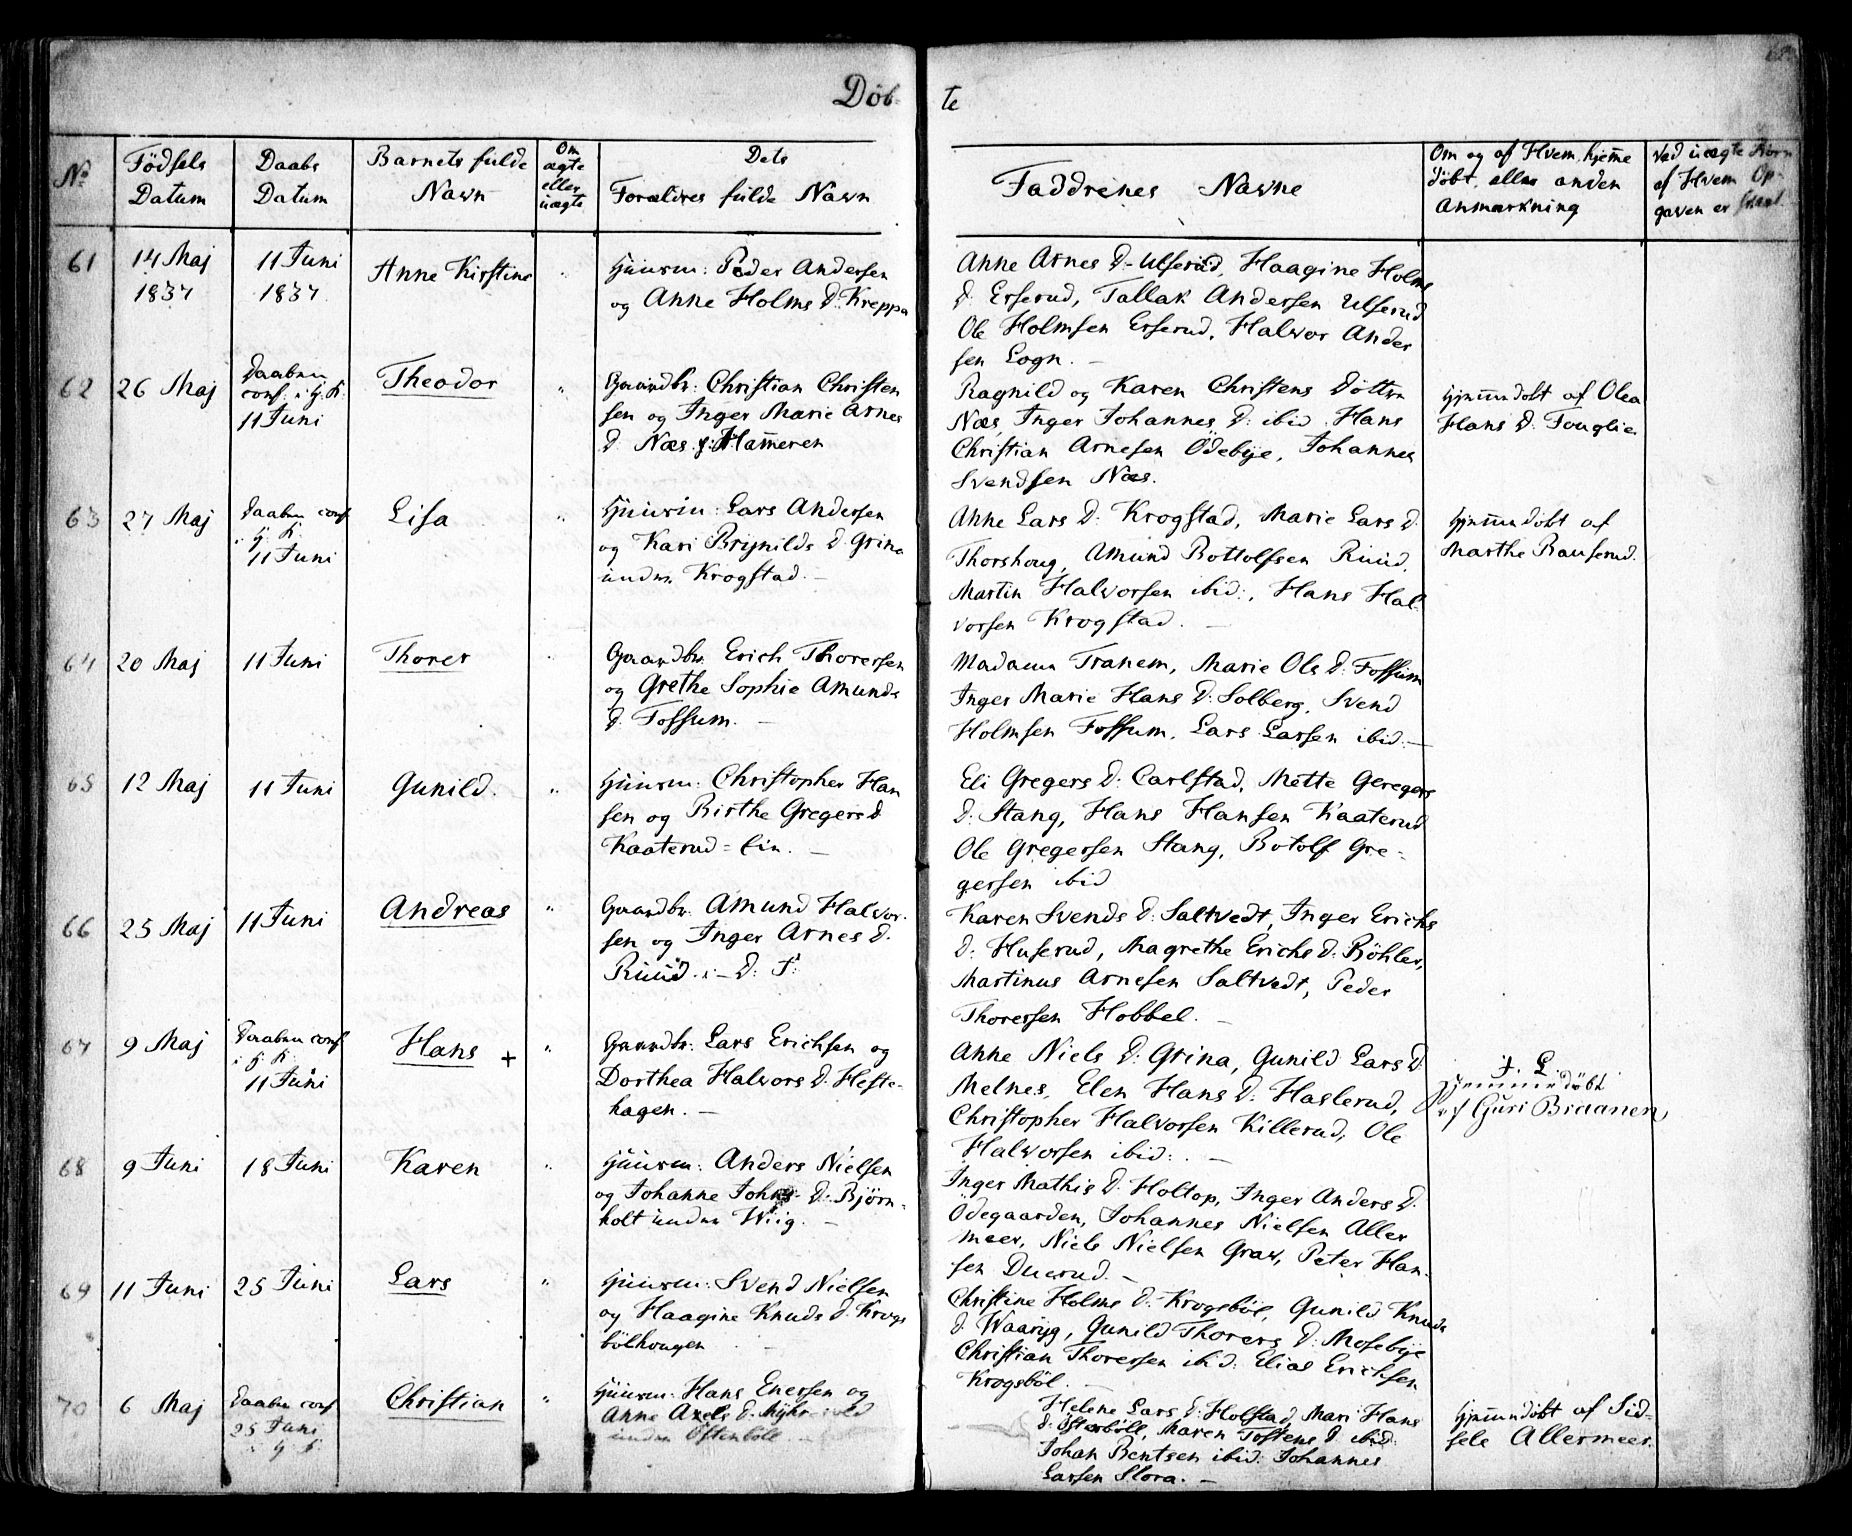 Döb-
te
No
Födsels Datum
Daabs Datum
Barnets fulde Navn
Om ægte eller uægte
Dets Forældres fulde Navn
Faddrenes Navne
Om og af Hvem hjemedöbt, eller anden Anmærkning
Ved uægte Börn af Hvem Opgaven er skeet
61 14 Maj 1837 11 Juni 1837 Anne Kirstine " Huusm: Peder Andersen
og Anne Holms D. Kreppa
Anne Arnes D- Ulserud, Haagine Holms
D. Erserud, Tallak Andersen Ulserud
Ole Holmsen Erserud, Halvor Ander
sen Sogn. –
62 26 Maj Daaben conf. i H. K. 11 Juni Theodor " Gaardbr: Christian Christen
sen og Inger Marie Arnes
D. Næs Hameren
Ragnild og Karen Christens Döttre
Næs, Inger Johannes D: ibid. Hans
Christian Arnesen Ödebye, Johannes
Svendsen Næs.
Hjemmedöbt af Olea
Hans D.
63 27 Maj Daaben conf. i H. K. 11 Juni Lisa " Huusm: Lars Andersen
og Kari Brynilds D. Grina
under Krogstad. –
Anne Lars D: Krogstad, Marie Lars D.
Thorshoug, Amund Bottolfsen Ruud,
Martin Halvorsen ibid:, Hans Hal-
vorsen Krogstad. –
Hjemmedöbt af
Marthe Rauserud.
64 20 Maj 11 Juni Thorer " Gaardbr. Erich Thorersen
og Grethe Sophie Amunds
D. Fossum. –
Madame Tranem, Marie Ols D: Fossum
Inger Marie Hans D: Solberg, Svend
Holmsen Fossum, Lars Larsen ibid. –
65 12 Maj 11 Juni Gunild. " Huusm: Christopher Han
sen og Birthe Gregers D
Kaaterud = Ein. –
Eli Gregers D: Carlstad, Mette Gregers
D: Stang, Hans Hansen Kaaterud
Ole Gregersen Stang, Botolf Gre-
gersen ibid
66 25 Maj 11 Juni Andreas " Gaardbr. Amund Halvor-
sen og Inger Arnes D.
Ruud.
Karen Svends D: Saltvedt, Inger Erichs
D: Huserud, Magrethe Erichs D: Böhler,
Martinus Arnesen Saltvedt, Peder
Thorersen Hobbel. –
67 9 Maj Daaben conf. i H. K. 11 Juni Hans + " Gaardbr: Lars Erichsen og
Dorthea Halvors D. Heste-
hagen. –
Anne Niels D: Grina, Gunild Lars D.
Melnes, Elen Hans D: Haslerud,
Christopher Halvorsen Killerud, Ole
Halvorsen ibid: . –
Hjemmedöbt
af Guri Braanen
68 9 Juni 18 Juni Karen " Huusm: Anders Nielsen
og Johanne Johns D: Björn-
holt under Wiig. –
Inger Mathis D. Holtop, Inger Anders D.
Ödegaarden, Johannes Nielsen Aller
meer, Niels Nielsen Grav, Peter Han-
sen Duerud. –
69 11 Juni 25 Juni Lars " Huusm: Svend Nielsen
og Haagine Knuds D. Krogs
bölhougen –
Christine Holms D. Krogsböl, Gunild Knuds
D. Waaryg, Gunild Thorers D: Mosebye
Christian Thorersen ibid: Elias Erichsen
Krogsböl. –
70 6 Maj Daaben conf. 25 Juni i H. K. Christian " Huusm: Hans Enersen og
Anne Axels D.
under Östenböll. –
Helene Lars D: Holstad, Mari Hans
D: Östenböll, Maren Tostens D. ibid:
Johan Bentsen ibid: Johannes
Larsen Slora. –
Hjemmedöbt af Sid-
sele Allermeer.